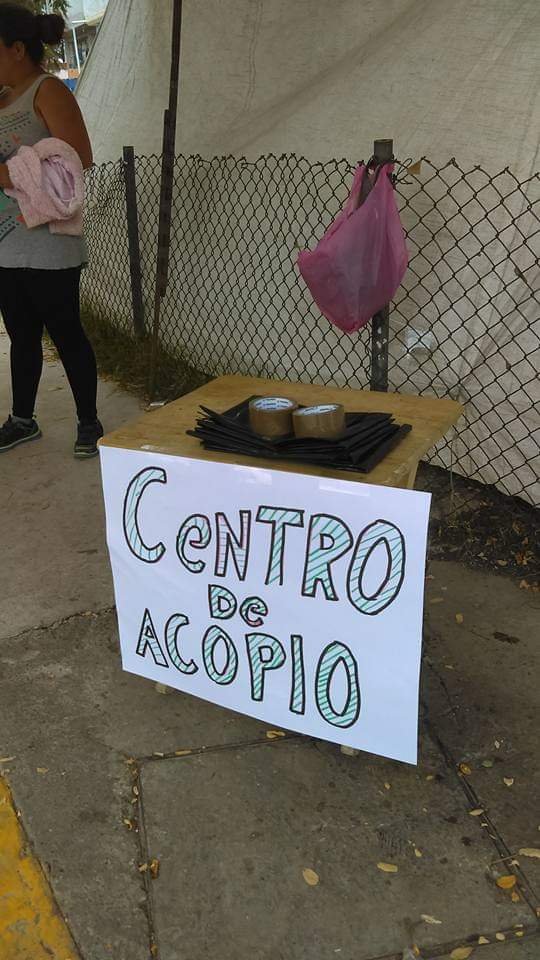 CeNTRO
De
ACOPIO